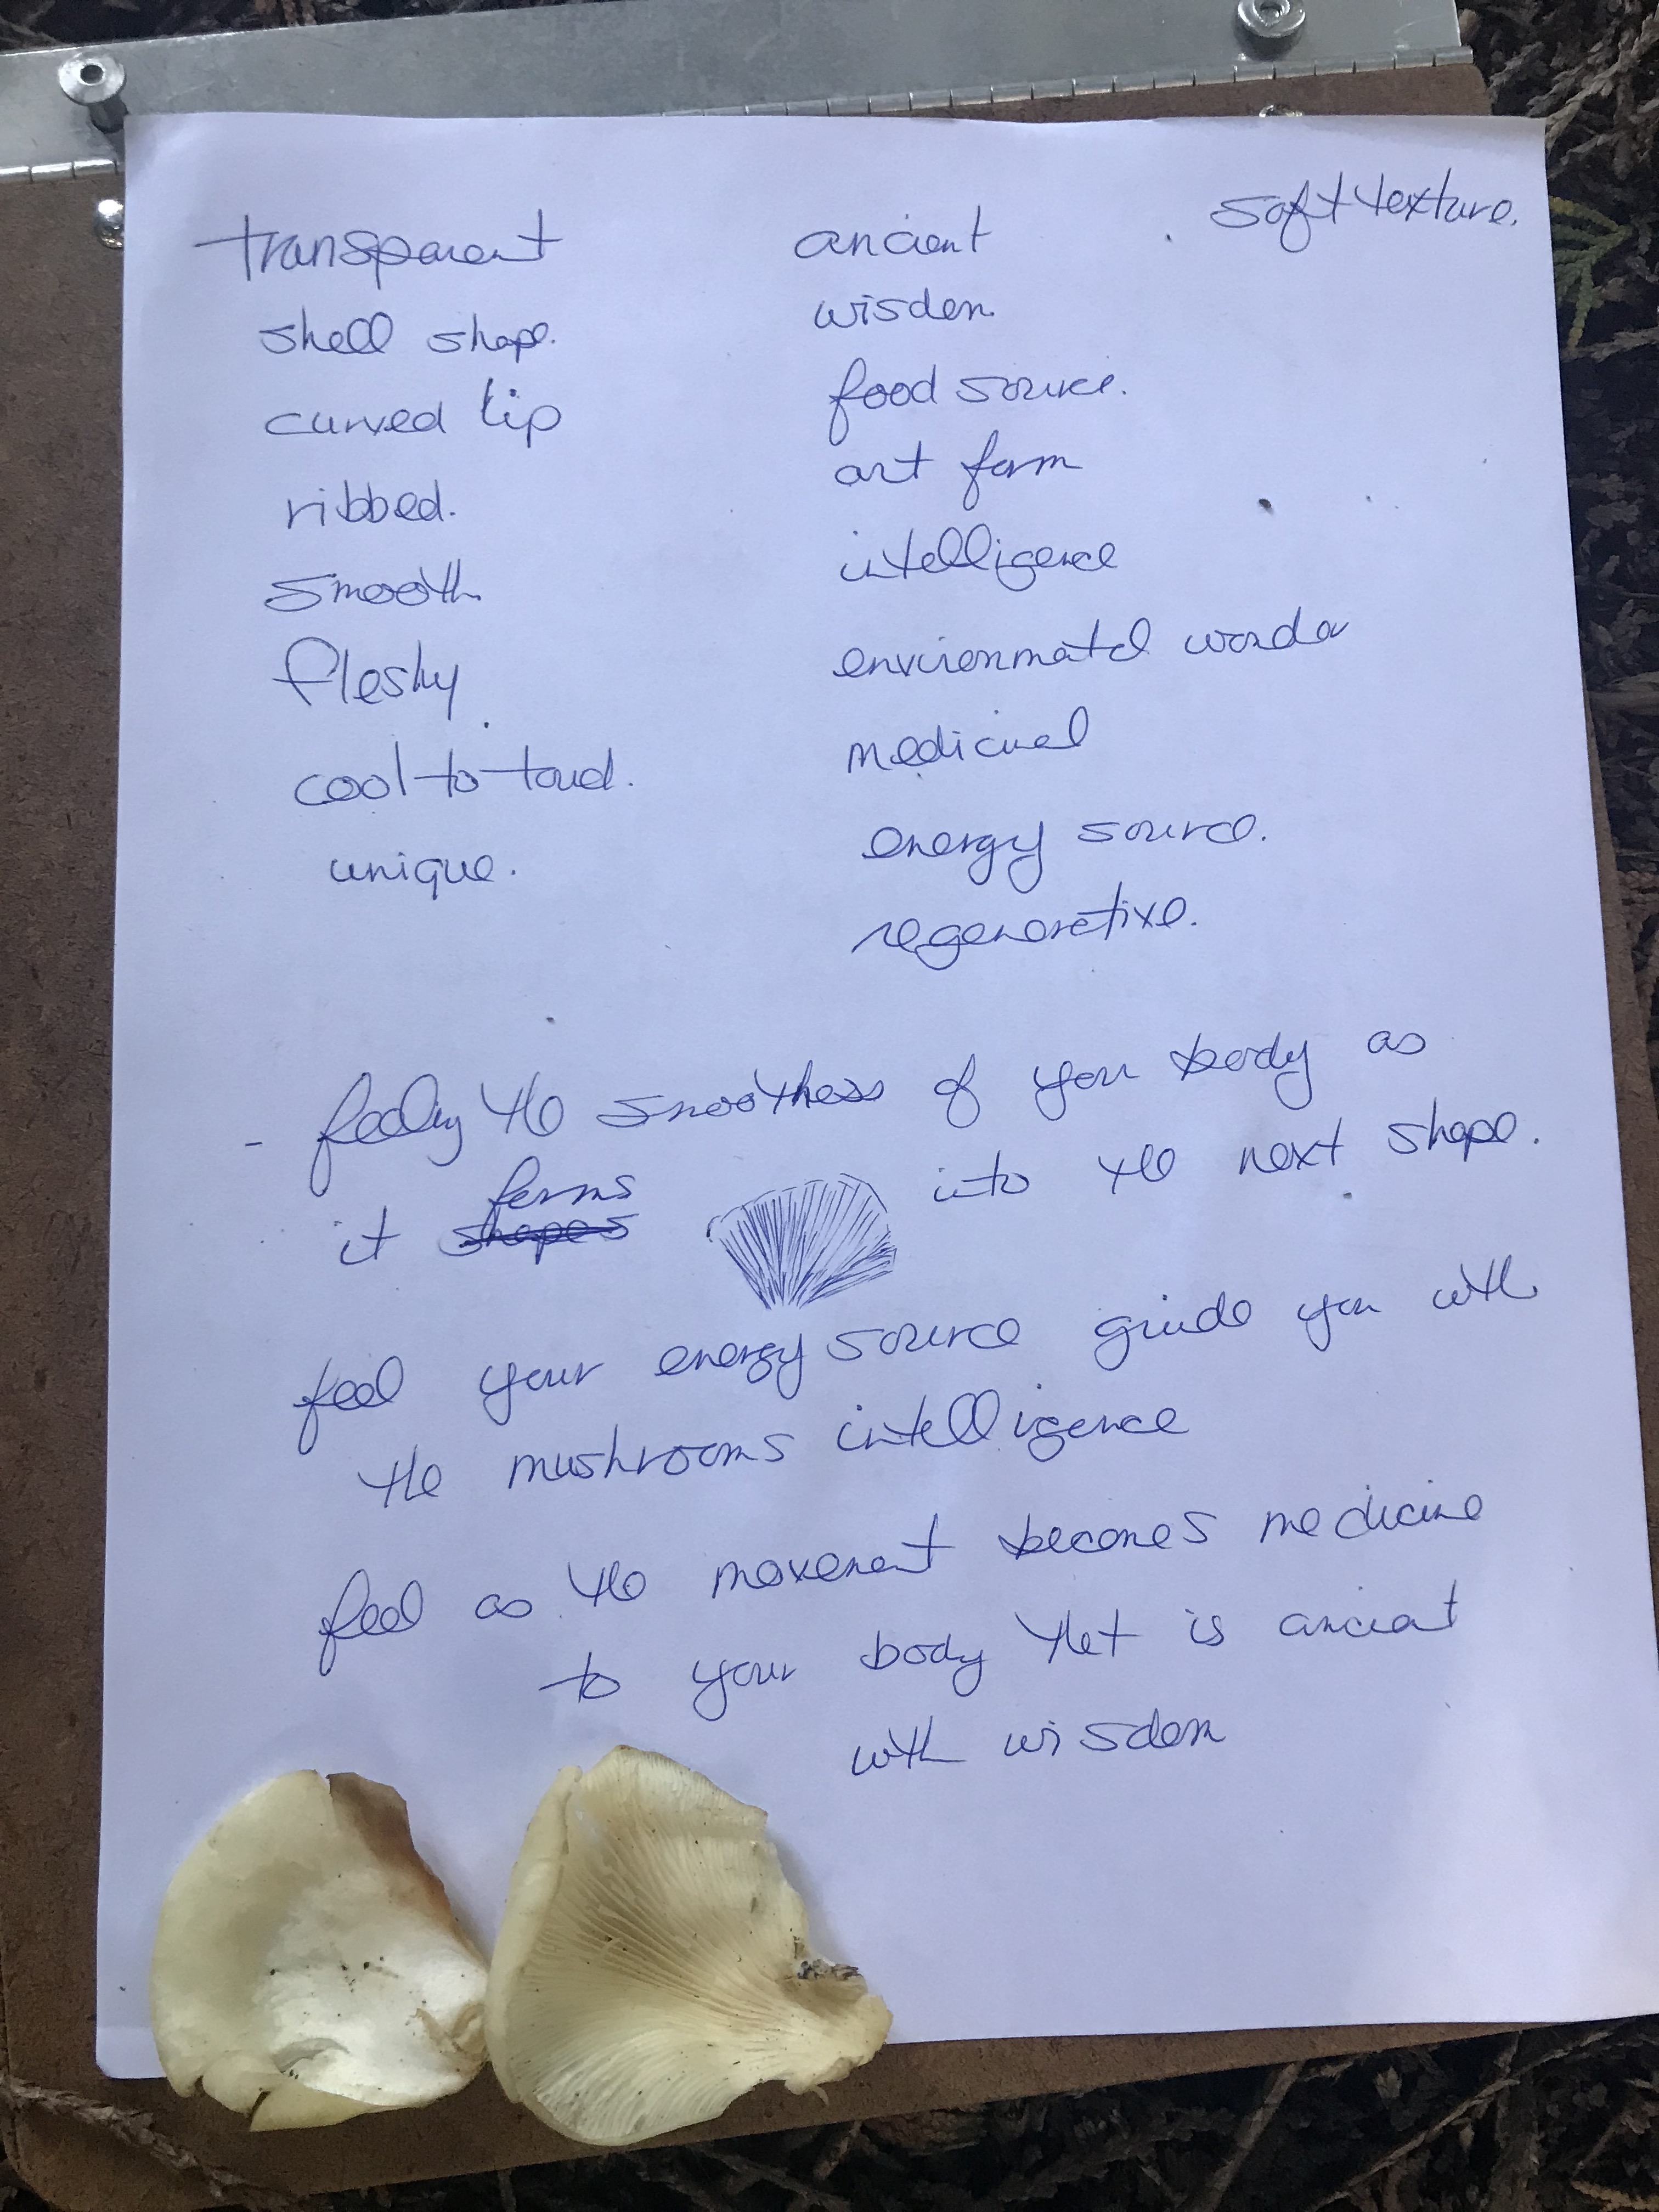 transparent
shell shape.
curved lip
ribbed.
smooth
fleshy
cool-to-touch.
unique.
ancient
wisdom.
food source.
art form
intelligence
envirionmatel wonder
medicinal
energy source.
regenerative.
soft texture.
- feeling the smoothness of your body as
it shapes forms into the next shape.
feel your energy source guide you with
the mushrooms intelligence
feel as the movement becomes medicine
to your body that is ancient
with wisdom